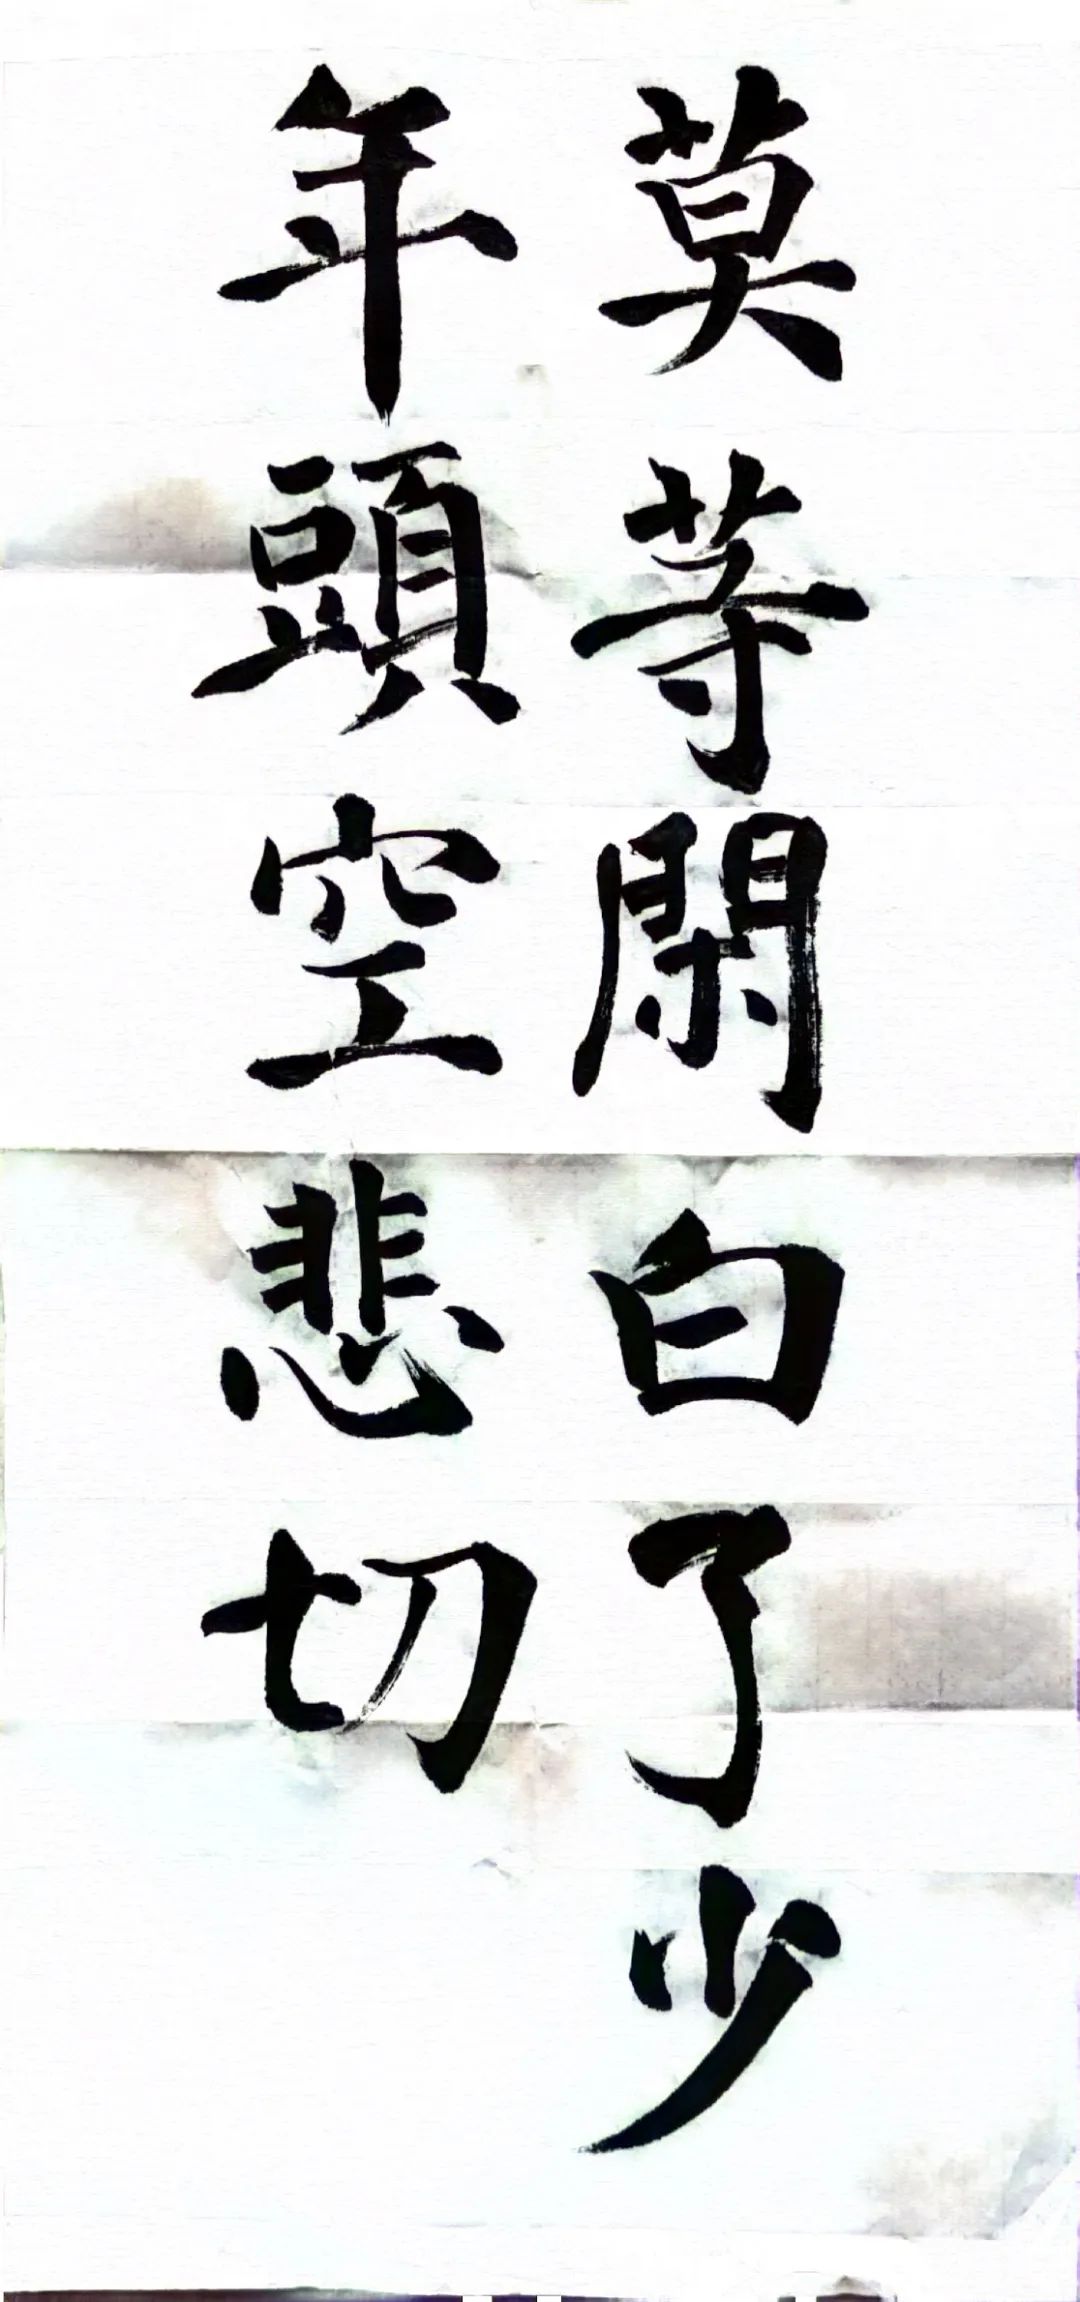 莫等閑白了少
年頭空悲切